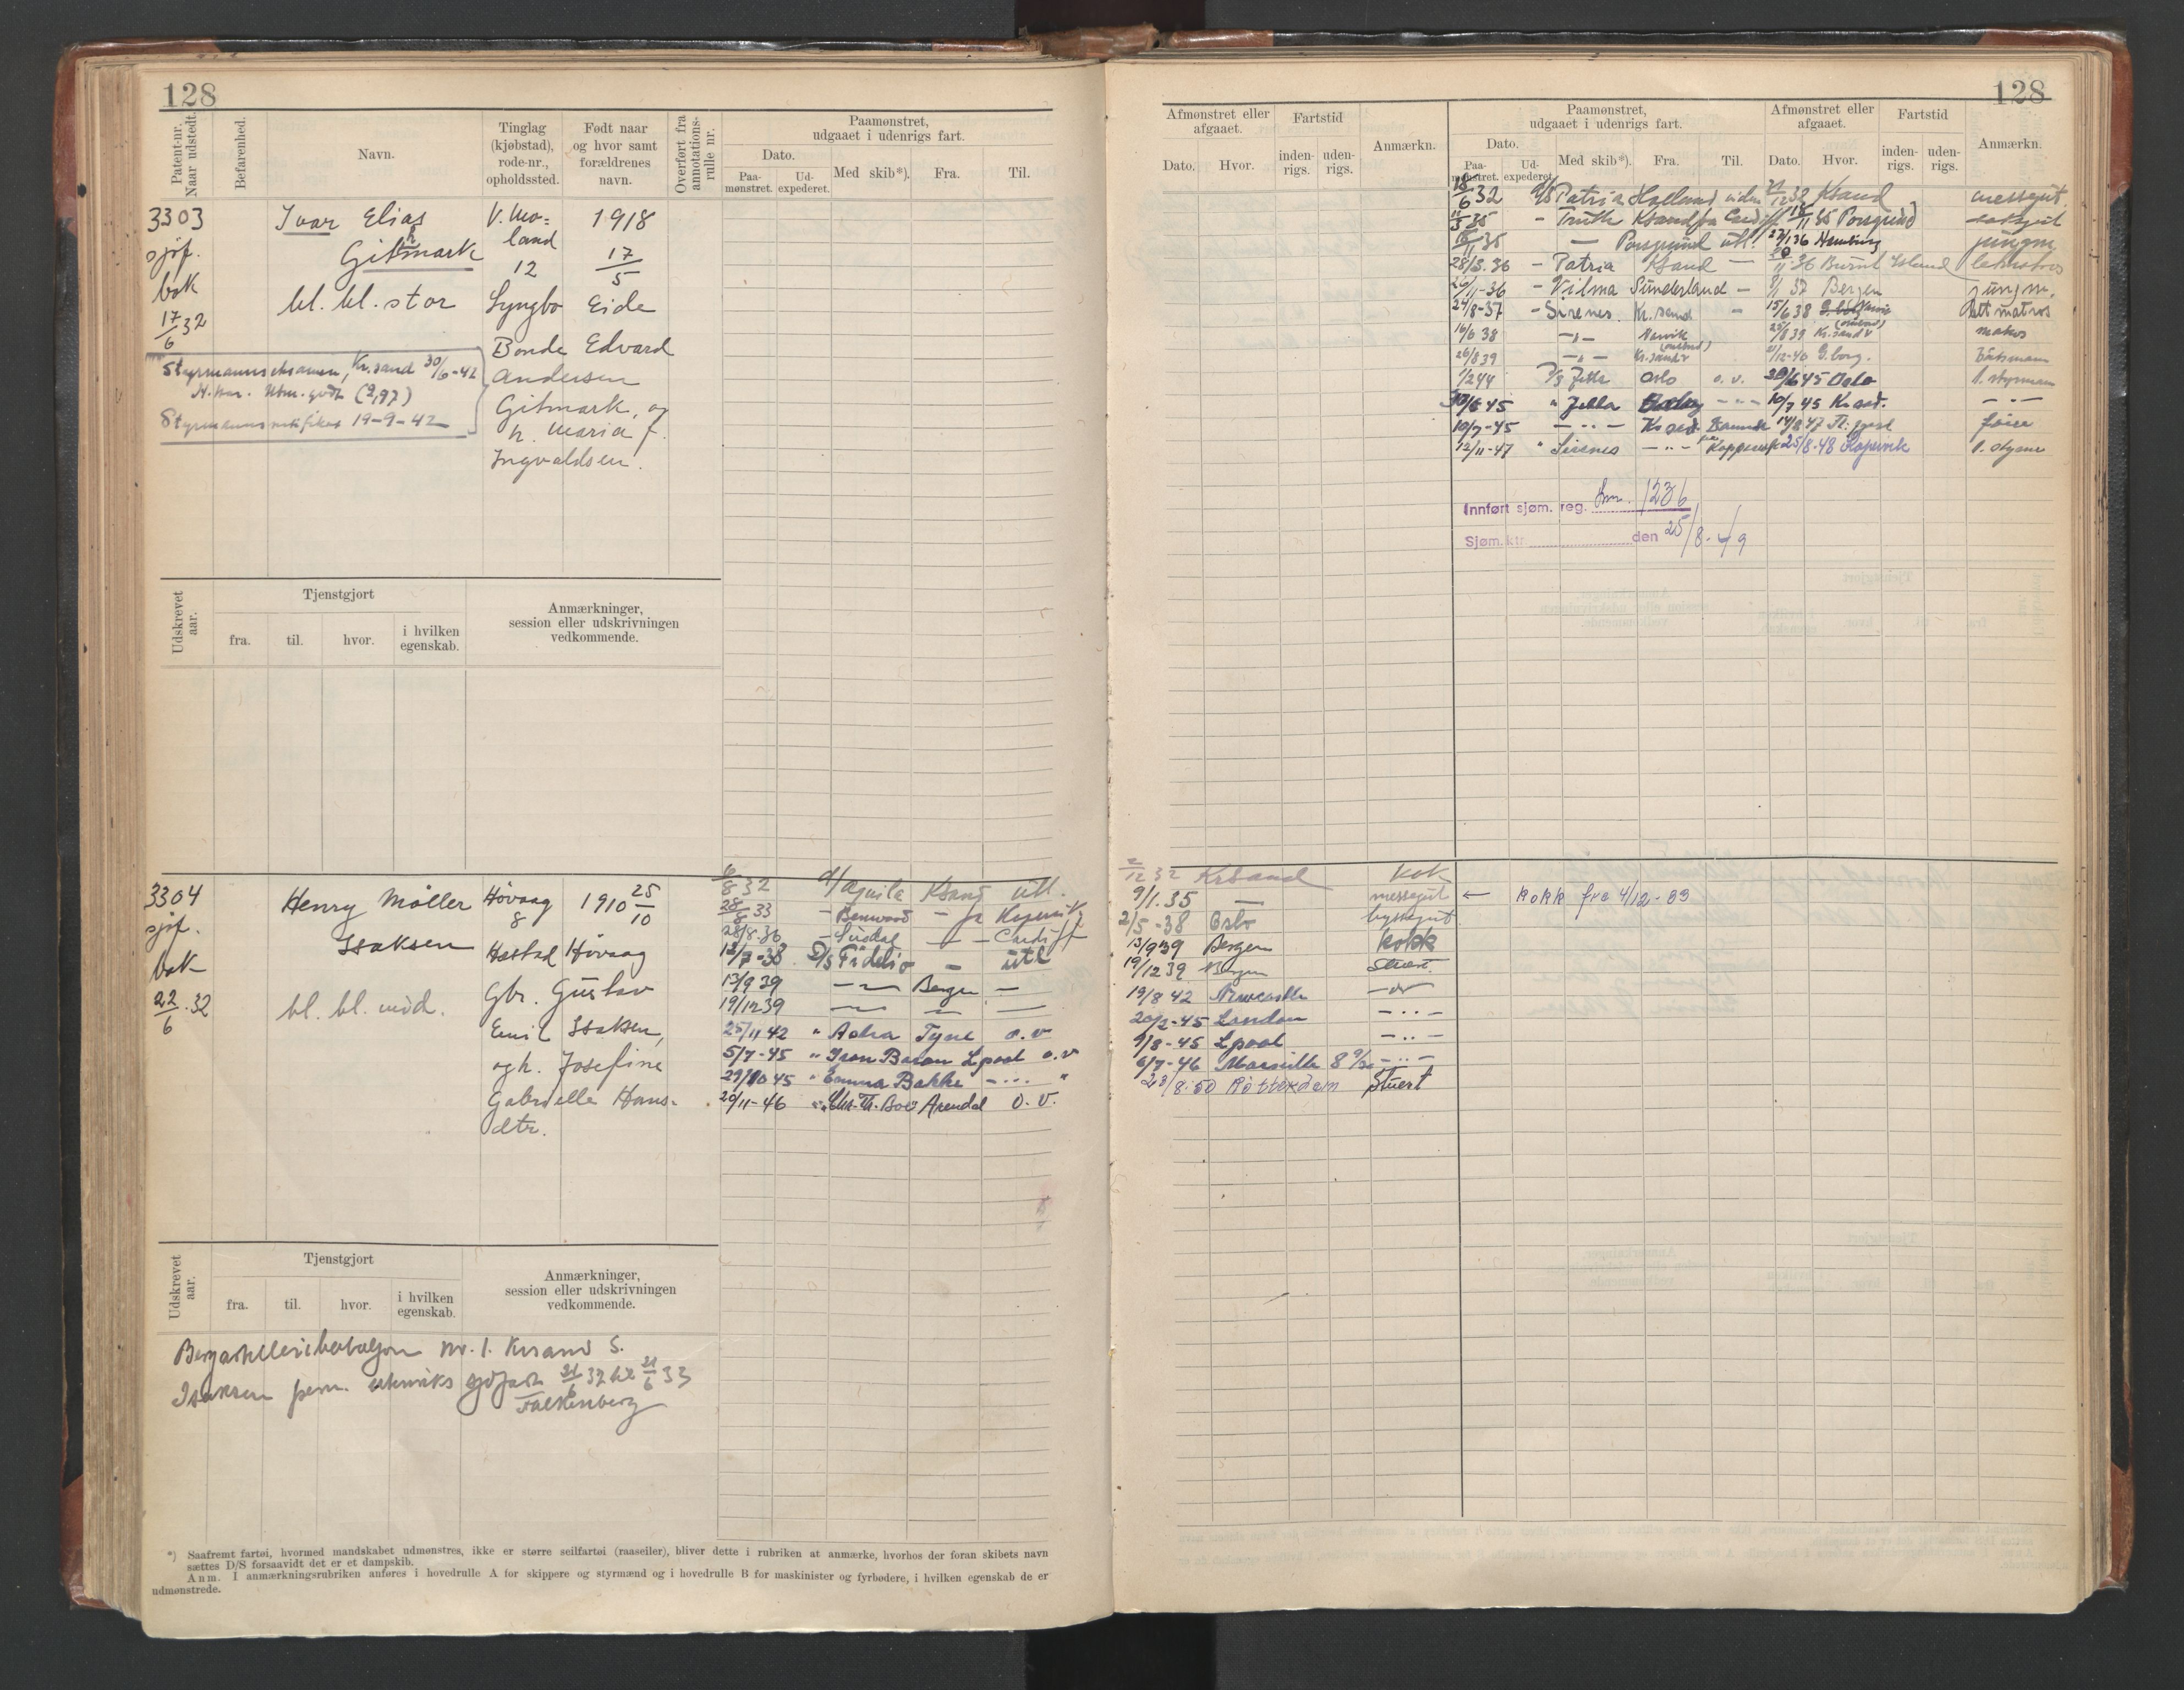 128
Patent-nr. Naar udstedt.
Befarenhed.
Navn.
Tinglag (kjøbstad), rode-nr., opholdssted.
Født naar og hvor samt forældrenes navn.
Overført fra annotations-rulle nr.
Paamønstret, udgaaet i udenrigs fart.
Dato.
Paa-mønstret.
Ud-expederet.
Med skib*).
Fra.
Til.
3303
sjøf.
bok
17/6 32
Ivar Elias
Gitmark
bl. bl. stor
V. Mo-
land
12
Lyngbo
1918
17/5
Eide
Bonde Edvard
Andersen
Gitmark, og
h. Maria f.
Ingvaldsen.
Styrmannseksamen, Kr.sand 30/6-42
Styrmannssertifikat 19-9-42
Udskrevet aar.
Tjenstgjort
fra.
til.
hvor.
i hvilken egenskab.
Anmærkninger, session eller udskrivningen vedkommende.
3304
sjøf.
bok
22/6 .32
Henry Møller
Isaksen
bl. bl. mid.
Høvaag
8
Hæstad
1910 25/10
Høvaag
Gbr. Gustav
Emil Isaksen,
og h. Josefine
Gabrielle Hans-
dtr.
6/8 32 d/ Aquila Ksand utl.
28/8 33 - Benwood - fra Kopervik
28/8-36 - Sirdal - - Cardiff
12/7-38 D/S Fidelio - utl
13/9 39 - Bergen -
19/12 39 - - -
25/11 42 " Adra Tyne o.v
5/7-45 " Iron Baron Lpool o.v
29/10 45 " Emma Bakke - " - "
20/11-46 " Chr. Th. Boe Arendal O.V.
Udskrevet aar.
Tjenstgjort
fra.
til.
hvor.
i hvilken egenskab.
Anmærkninger, session eller udskrivningen vedkommende.
Bergartilleribataljon nr. 1. Krsand S.
Isaksen perm. utenriks sjøfart 21/6 32 til 21/6 33
Falkenberg
*) Saafremt fartøi, hvormed mandskabet udmønstres, ikke er større seilfartøi (raaseiler), bliver dette i rubriken at anmærke, hvorhos der foran skibets navn
sættes D/S forsaavidt det er et dampskib.
Anm. I anmærkningsrubriken anføres i hovedrulle A for skippere og styrmænd og i hovedrulle B for maskinister og fyrbødere, i hvilken egenskab de er
udmønstrede.
128
Afmønstret eller afgaaet.
Dato.
Hvor.
Fartstid
inden-rigs.
uden-rigs.
Anmærkn.
Paamønstret, udgaaet i udenrigs fart.
Dato.
Paa-mønstret.
Ud-expederet.
Med skib*).
Fra.
Til.
Afmønstret eller afgaaet.
Dato.
Hvor.
Fartstid
inden-rigs.
uden-rigs.
Anmærkn.
18/6 32 d/s Patria Holland 21/12 32 Ksand messegut.
- Truth Ksand fra Cardiff 35 Porsgrund
35 - Porsgrund utl. 136 Hamburg jungm.
28/3.36 - Patria Ksand - 36 Burnt Island lettmatros
26/11-36 - Vilma Sunderland - 37 Bergen jungm.
24/8-37 - Sirenes Kr.sand - 15/6 38 Narvik lettmatros
16/6 38 - " - Narvik 25/8 39 Kr.sand matros
26/8 39 - " - Kr.sand 12-40 G.borg. båtsmann
1/2 44 Oslo o.v. 30/6 45 Oslo 1. styrman
45 " Jella - " - 10/7 45 Kr.sd. - " -
10/7-45 - " - Kr.sd. 47 fører
12/11-47 " Sirenes - " - Kopervik 25/8-48 Kopervik 1. styrm
Innført sjøm. reg. 1236
Sjøm.ktr. den 25/8-49
2/12 32 Krsand kok
9/1.35 - messegut ← kokk fra 4/12-33
2/5-38 Oslo byssegut
13/9 39 Bergen kokk
19/12 39 Bergen Stuert.
19/8 42 Newcastle
20/2-45 London - " -
9/8-45 Lpool - " -
6/7-46 Marseille - " -
23/8-50 Rotterdam Stuert